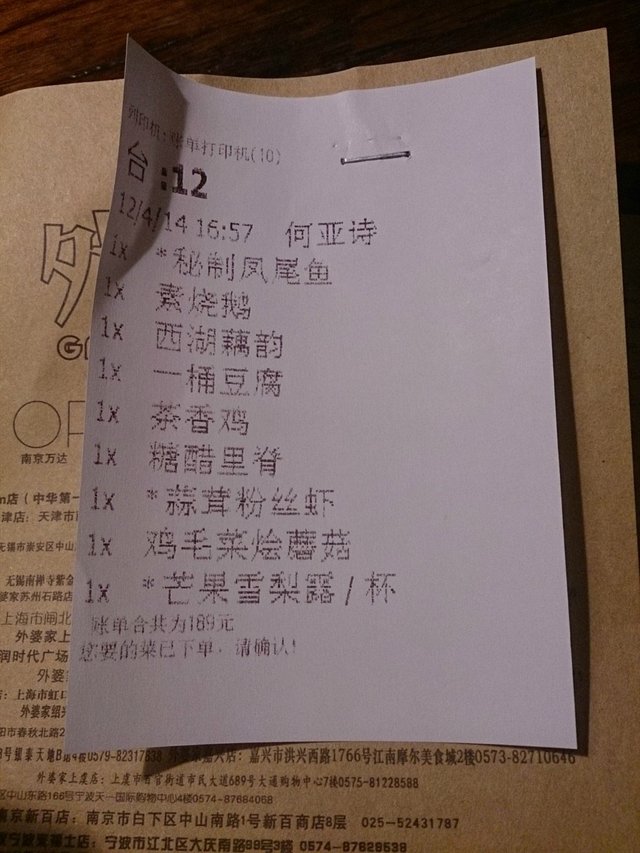 列印机：账单打印机(10)
台:12
12/4/14 16:57 何亚诗
1x *秘制凤尾鱼
1x 素烧鹅
1x 西湖藕韵
1x 一桶豆腐
1x 茶香鸡
1x 糖醋里脊
1x *蒜茸粉丝虾
1x 鸡毛菜烩蘑菇
1x *芒果雪梨露/杯
账单合共为189元
您要的菜已下单，请确认!
G
南京万达
店（中华第一
津店：天津市
无锡市崇安区中山
无锡南禅寺紫金
婆家苏州石路店
上海市闸北
外婆家上
润时代广场
外婆家
上海市虹口
外婆家绍兴
阳市春秋北路2
3号银泰天地B座4楼0579-82317838 外婆家嘉兴店：嘉兴市洪兴西路1766号江南摩尔美食城2楼0573-82710646
外婆家上虞店：上虞市百官街道市民大道689号大通购物中心7楼0575-81228588
区中山东路166号宁波天一国际购物中心4楼0574-87684068
南京新百店：南京市白下区中山南路1号新百商店8层 025-52431787
宁波市江北区大庆南路88号3楼 0574-87828538